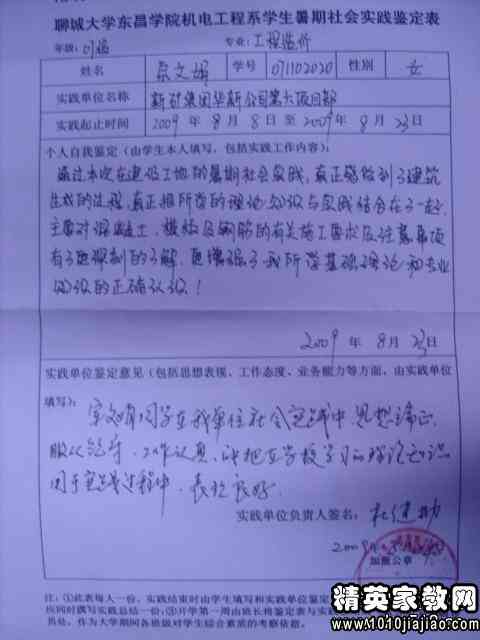 聊城大学东昌学院机电工程系学生暑期社会实践鉴定表
年级: 专业:工程造价
姓名 文娟 学号 071102020 性别 女
实践单位名称 新矿集团华新公司第六项目部
实践起止时间 2009年8月8日至2009年8月23日
个人自我鉴定(由学生本人填写,包括实践工作内容):
通过本次在建设工地的暑期社会实践,真正感触到了建筑
生成的过程,真正把所学的理论知识与实践结合在了一起,
主要对混凝土、模板及钢筋的有关施工要求及注意事项
有了更深刻的了解,更增强了我所学基础理论和专业
知识的正确认识!
2009年8月23日
实践单位鉴定意见(包括思想表现、工作态度、业务能力等方面,由实践单位
填写):
文娟同学在我单位社会实践中,思想端正,
服从领导,工作认真,能把在学校学习的理论知识
用于实践过程中,表现良好。
实践单位负责人签名:
2009年
加盖公章
注:①此表每人一份,实践结束时由学生填写和实践单位鉴定
应同时撰写实践总结一份;③开学第一周由班长将鉴定表与实践
员处,作为大学期间各班级对学生综合素质的考察依据。
精英家教网
www.1010jiajiao.com